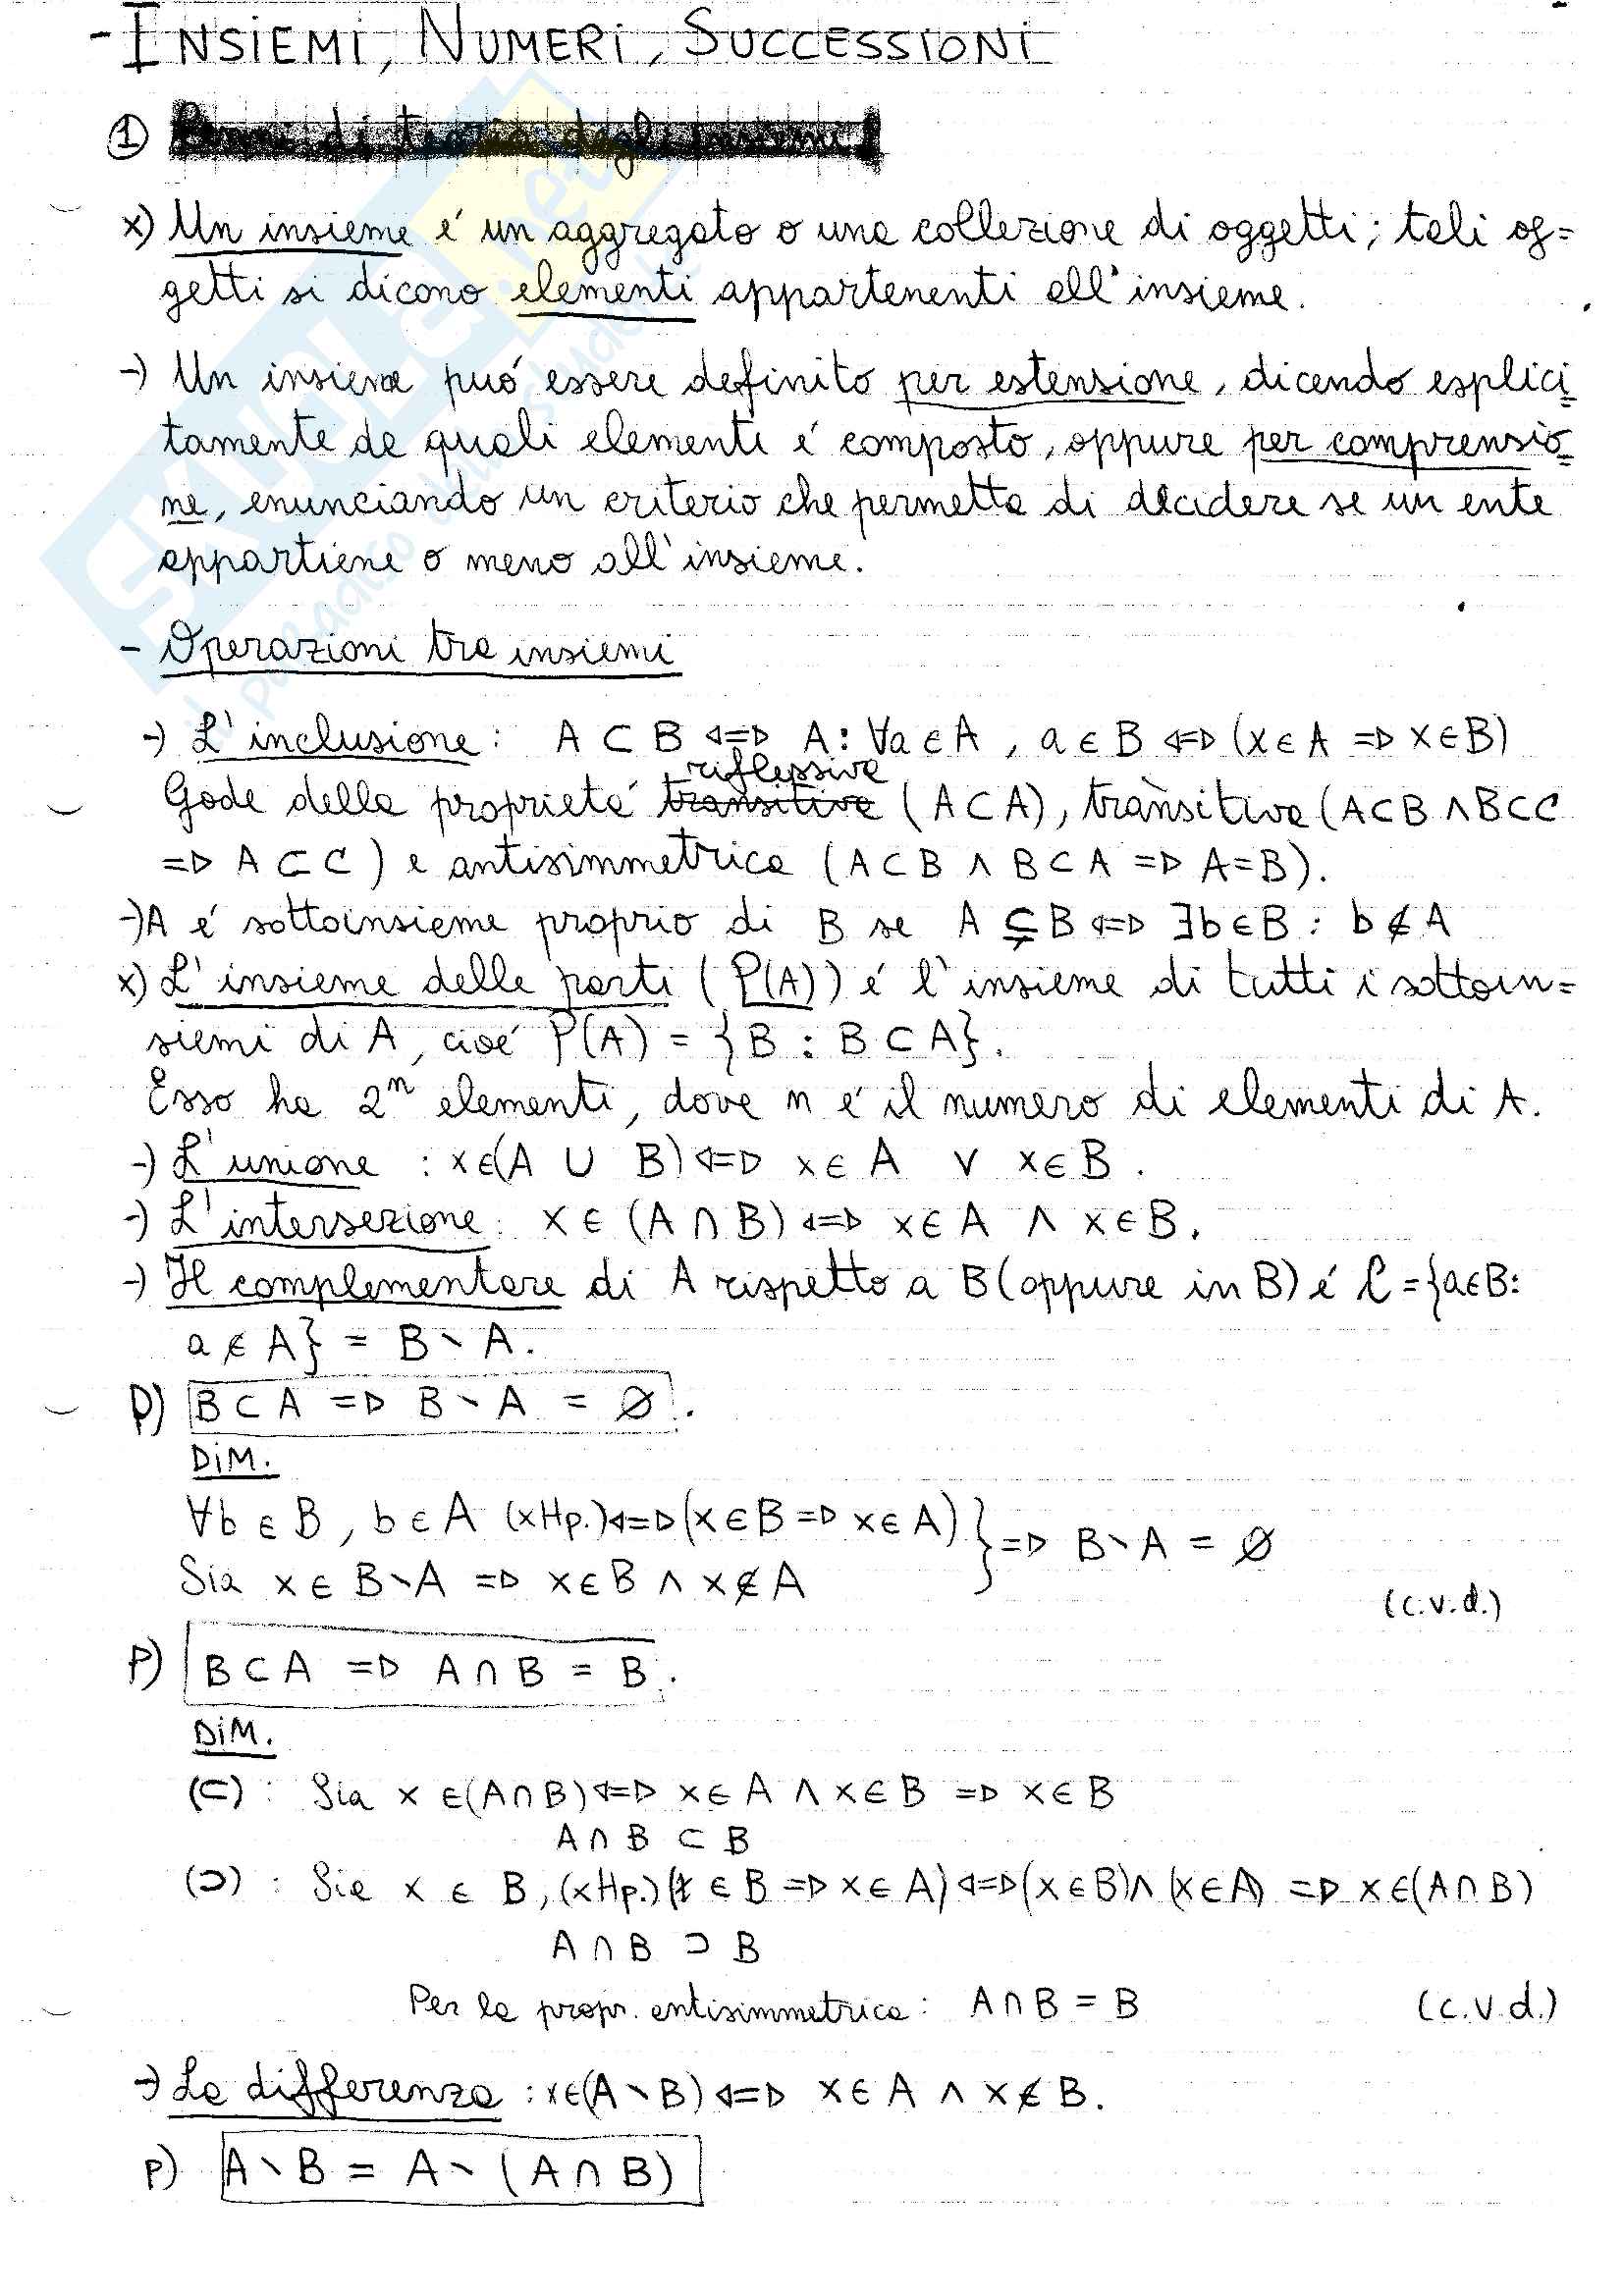 - INSIEMI, NUMERI, SUCCESSIONI
① di teoria degli insiemi
x) Un insieme é un aggregato o una collezione di oggetti; tali og=
getti si dicono elementi appartenenti all'insieme.
→) Un insieme puó essere definito per estensione, dicendo esplici=
tamente da quali elementi é composto, oppure per comprensio=
ne, enunciando un criterio che permetta di decidere se un ente
appartiene o meno all'insieme.
- Operazioni tra insiemi
→) L'inclusione: A ⊂ B ⇔ A: ∀a ∈ A, a ∈ B ⇔ (x ∈ A ⇒ x ∈ B)
riflessiva
Gode della proprietá transitiva (A ⊂ A), transitiva (A ⊂ B ∧ B ⊂ C
⇒ A ⊂ C) e antisimmetrica (A ⊂ B ∧ B ⊂ A ⇒ A = B).
→) A é sottoinsieme proprio di B se A ⊊ B ⇔ ∃b ∈ B : b ∉ A
x) L'insieme delle parti (P(A)) é l'insieme di tutti i sottoin=
siemi di A, cioé P(A) = {B : B ⊂ A}.
Esso ha 2ⁿ elementi, dove n é il numero di elementi di A.
→) L'unione : x ∈ (A ∪ B) ⇔ x ∈ A ∨ x ∈ B.
→) L'intersezione: x ∈ (A ∩ B) ⇔ x ∈ A ∧ x ∈ B.
→) Il complementare di A rispetto a B (oppure in B) é C = {a ∈ B:
a ∉ A} = B ∖ A.
P) B ⊂ A ⇒ B ∖ A = ∅.
DIM.
∀b ∈ B, b ∈ A (x Hp.) ⇔ (x ∈ B ⇒ x ∈ A) } ⇒ B ∖ A = ∅
Sia x ∈ B ∖ A ⇒ x ∈ B ∧ x ∉ A
(c.v.d.)
P) B ⊂ A ⇒ A ∩ B = B.
DIM.
(⊂) : Sia x ∈ (A ∩ B) ⇔ x ∈ A ∧ x ∈ B ⇒ x ∈ B
A ∩ B ⊂ B
(⊃) : Sia x ∈ B, (x Hp.) (x ∈ B ⇒ x ∈ A) ⇔ (x ∈ B) ∧ (x ∈ A) ⇒ x ∈ (A ∩ B)
A ∩ B ⊃ B
Per la propr. antisimmetrica: A ∩ B = B (c.v.d.)
→) La differenza : x ∈ (A ∖ B) ⇔ x ∈ A ∧ x ∉ B.
P) A ∖ B = A ∖ (A ∩ B)